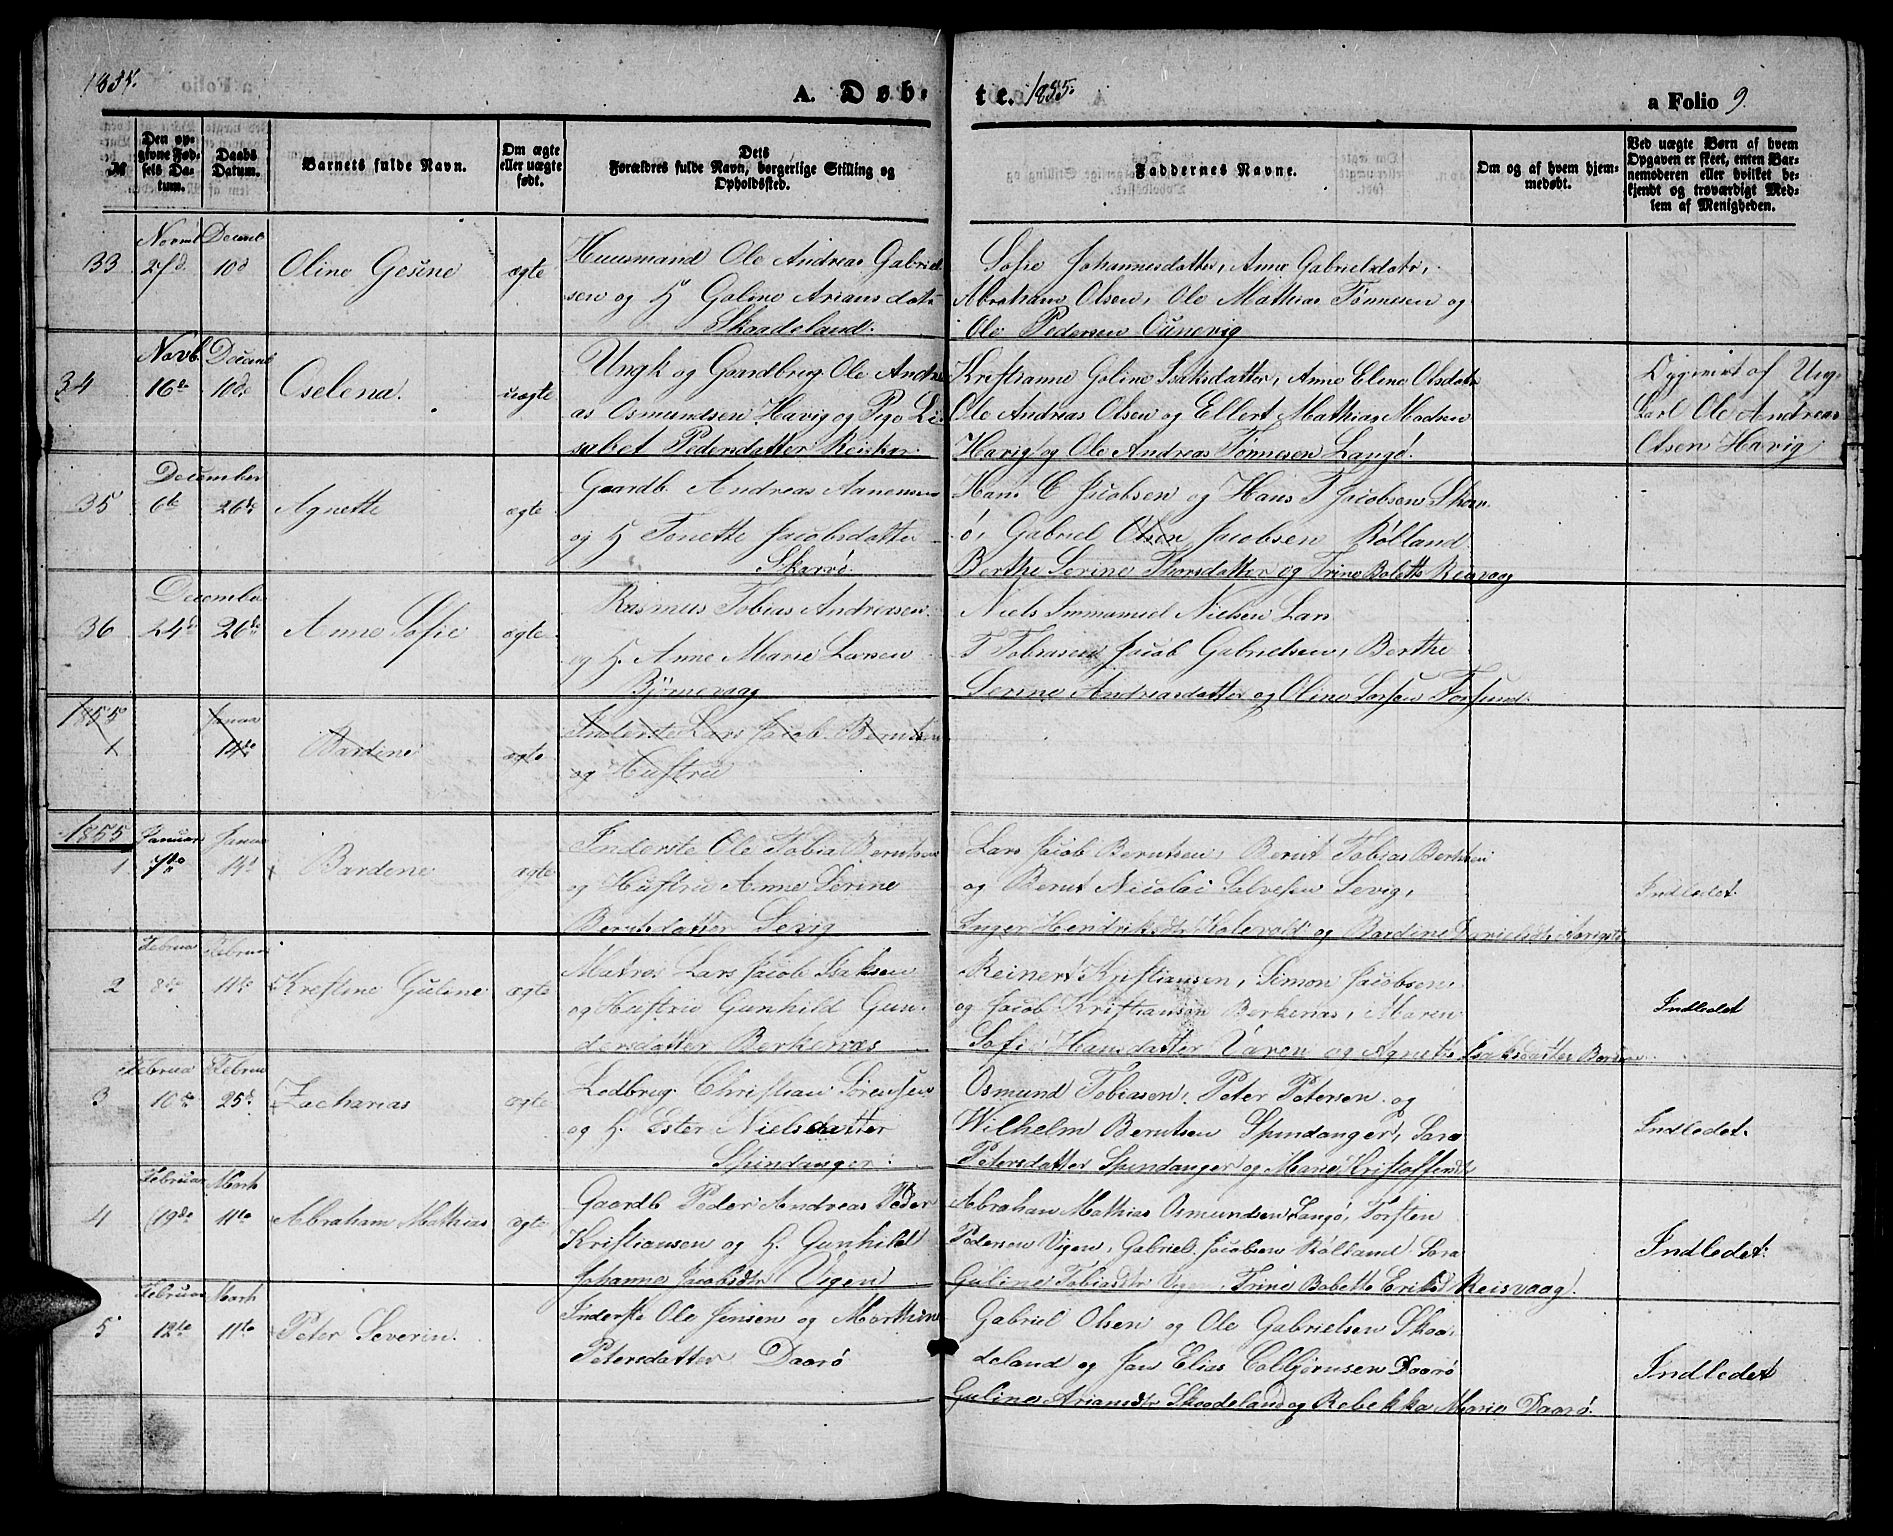 1854.
A. Døb-
te. 1855.
a Folio 9.
№
Den op-
givne Fød-
sels Da-
tum.
Daabs
Datum.
Barnets fulde Navn.
Om ægte
eller uægte
født.
Dets
Forældres fulde Navn, borgerlige Stilling og
Opholdssted.
Faddernes Navne.
Om og af hvem hjem-
medøbt.
Ved uægte Børn af hvem
Opgaven er skeet, enten Bar-
nemoderen eller hvilket be-
kjendt og troværdigt Med-
lem af Menigheden.
33
Novmb
27d
Decmb
10d
Oline Gesine
ægte
Huusmand Ole Andreas Gabriel
sen og H Goline Ariansdatr
Skaadeland.
Sofie Johannesdatter, Anne Gabrielsdatr,
Abraham Olsen, Ole Mathias Tønnesen og
Ole Pedersen Ounevig
34
Novb.
16de
Decmb
10de
Oselena.
uægte
Ungk og Gaardbrug. Ole Andre
as Osmundsen Havig og Pige Li-
sabet Pedersdatter
Kristianne Goline Isaksdatter, Anne Elene Olsdatr
Ole Andreas Olsen og Ellert Mathias Madsen
Havig og Ole Andreas Tønnesen Langø.
Opgivet af Ung-
karl Ole Andreas
Olsen Havig
35
December
6te
26de
Agnette
ægte
Gaardb. Andreas Aanensen
og H Tonette Jacobsdatter
Skarvø.
Hans C Jacobsen og Hans T Jacobsen Skar-
ø, Gabriel Olsen Jacobsen Rølland
Berthe Serine Thorsdatter og Trine Bolette Reisvaag
36
December
24d
26de
Anne Sofie
ægte
Rasmus Tobias Andreasen
og H. Anne Marie Larsen
Bjørnevaag
Niels Immanuel Nielsen Lars
T Tobiasen Jacob Gabrielsen, Berthe
Serine Andreasdatter og Oline Larsen Forsund.
1855
1
Janua
14de
Bardine
ægte
Inderste Lars Jacob Berntsen
og Hustru
1855
1
Januar
7de
Janua
14d
Bardene
ægte
Inderste Ole Tobia Berntsen
og Hustru Anne Serine
Berntsdatter Sevig
Lars Jacob Berntsen, Bernt Tobias Berntsen
og Bernt Nicolai Salvesen Sevig,
Inger Hendriksdtr Kalevold og Bardine Danielsdtr
Indledet.
2
Februa
8de
Februa
11te
Krestine Guline
ægte
Matros Lars Jacob Isaksen
og Hustru Gunhild Gun-
dersdatter Berkenæs
Reinert Kristiansen, Simon Jacobsen,
og Jacob Kristiansen Berkenæs, Maren
Sofie Hansdatter Varen og Agnete Isaksdatter
Indledet
3
Februa
10de
Februa
25de
Zacharias
ægte
Ledbrug. Christian Sørensen
og H. Ester Nielsdatter
Spindanger.
Osmund Tobiasen, Peter Petersen og
Wilhelm Berntsen Spindanger, Sara
Petersdatter Spindanger og Marie Kristoffersdtr
Indledet.
4
Februar
19de
Marts
11te
Abraham Mathias
ægte
Gaardb Peder Andreas Peder
Kristiansen og H. Gunhild
Johanne Jacobsdtr Vigen
Abraham Mathias Osmundsen Langø, Torsten
Pedersen Vigen, Gabriel Jacobsen Rølland Sara
Guline Tobiasdtr Vigen, Trine Bolette Eriksd Reisvaag.
Indledet:
5
Februar
12te
Marts
11te
Peter Severin.
Inderste Ole Jensen og Marthine
Petersdatter Daarø
Gabriel Olsen og Ole Gabrielsen Skaa-
deland og Jan Elias Colbjørnsen Daarø
Guline Ariansdtr Skaadeland og Rebekka Marie Daarø.
Indledet